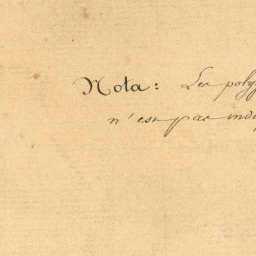 Nota: Les polyg
n'est pas indi